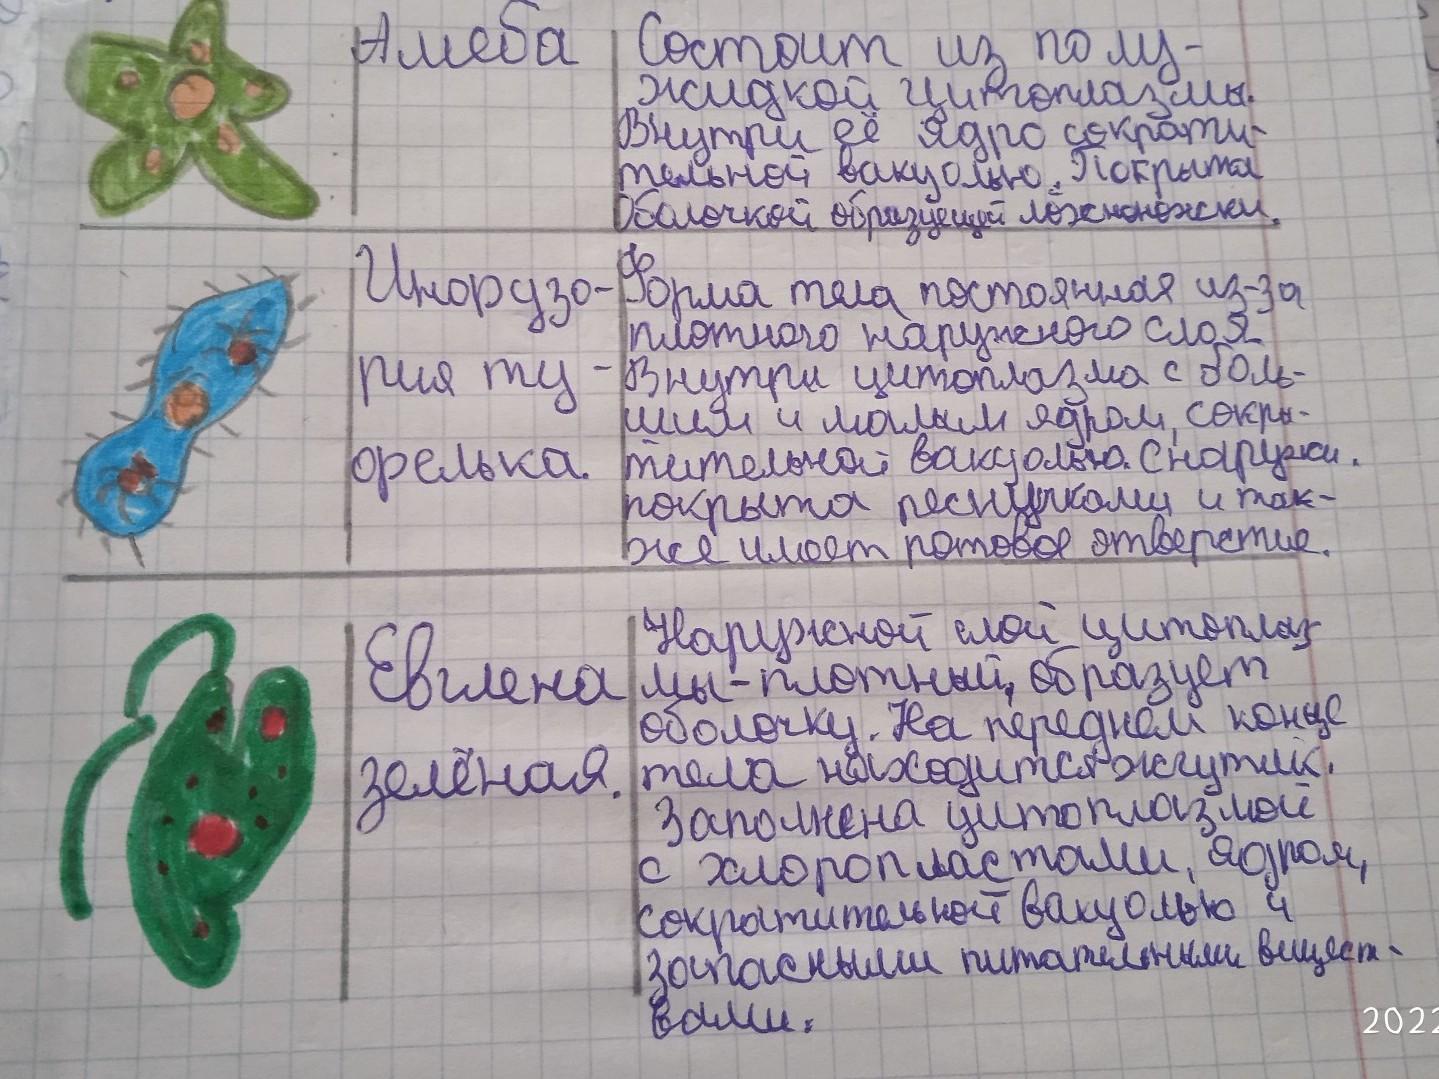 Амеба
Состоит из полу-
жидкой цитоплазмы.
Внутри её ядро сократи-
тельной вакуолью. Покрыта
оболочкой образующей ложноножки.
Инфузо-
рия ту-
фелька.
Форма тела постоянная из-за
плотного наружного слоя
Внутри цитоплазма с боль-
шим и малым ядром, сокра-
тительной вакуолью. Снаружи.
покрыта ресничками и так-
же имеет ротовое отверстие.
Евглена
зелёная.
Наружной слой цитоплаз
мы-плотный, образует
оболочку. На переднем конце
тела находится жгутик.
Заполнена цитоплазмой
с хлоропластами, ядром,
сократительной вакуолью и
запасными питательными вещест-
вами.
2022